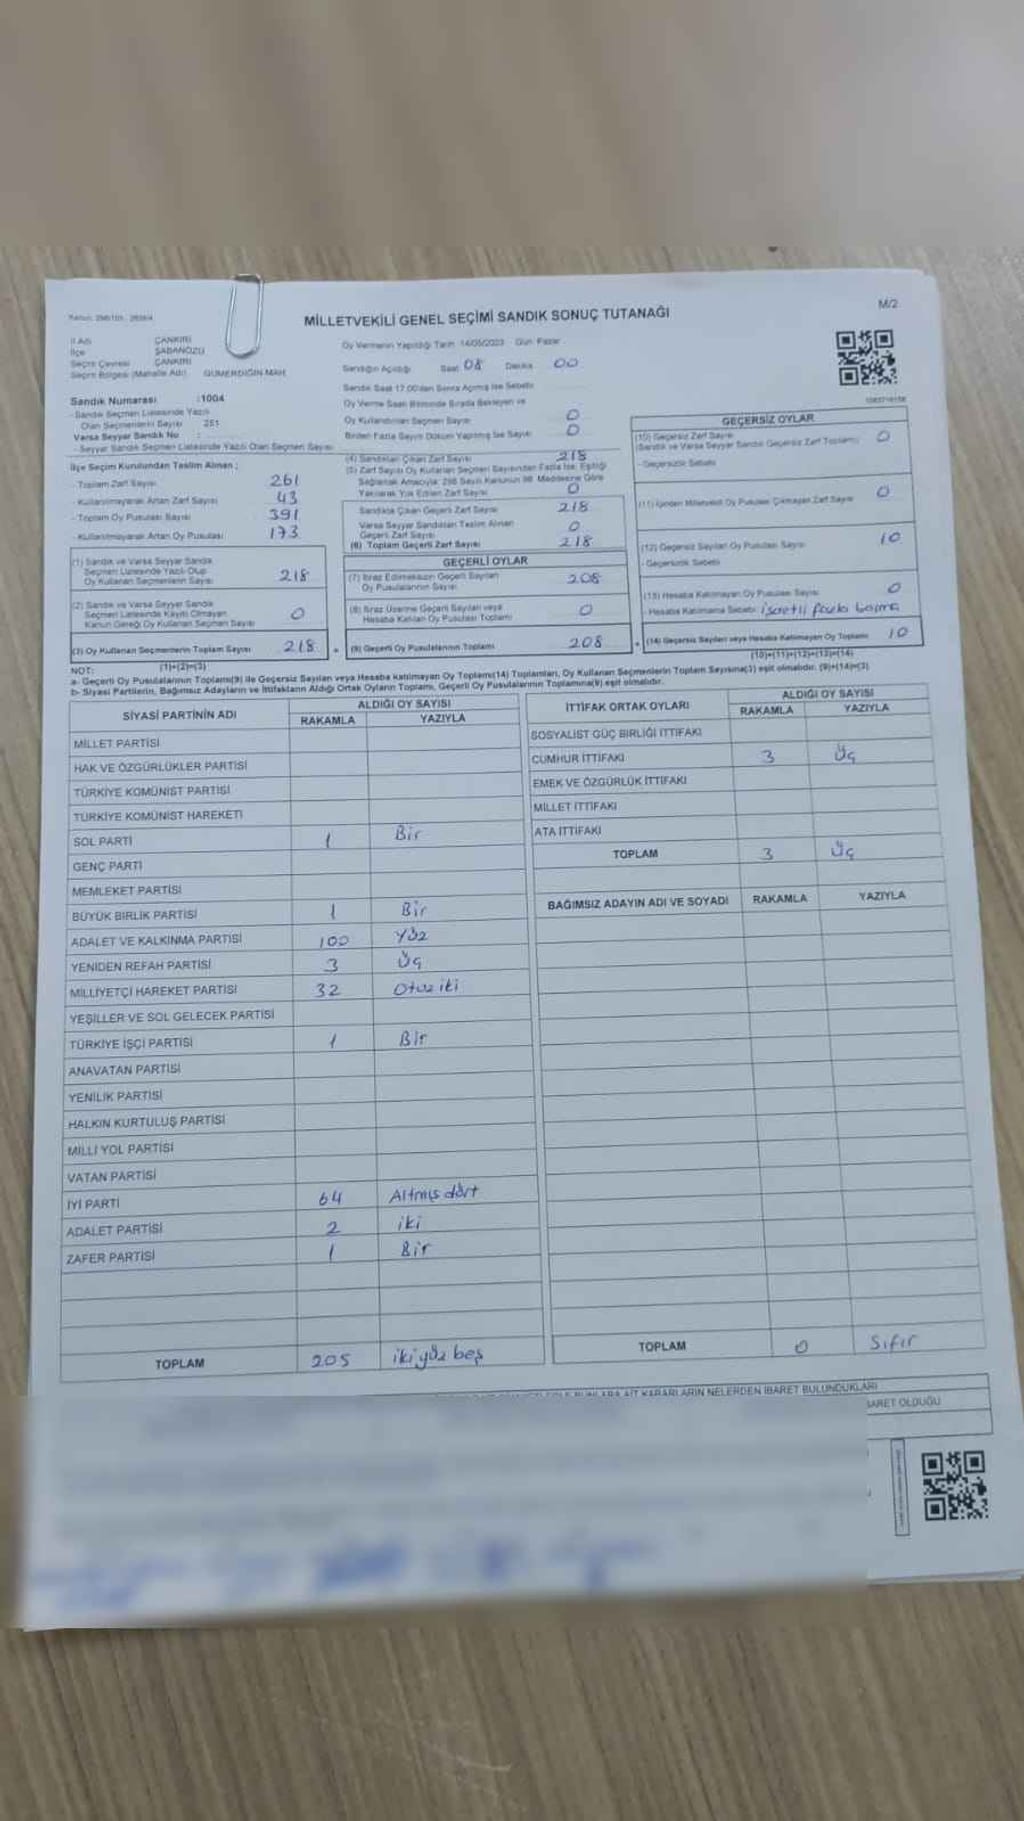 M/2
MİLLETVEKİLİ GENEL SEÇİMİ SANDIK SONUÇ TUTANAĞI
İl Adı ÇANKIRI
İlçe ŞABANÖZÜ
Seçim Çevresi ÇANKIRI
Seçim Bölgesi (Mahalle Adı) GÜMERDİĞİN MAH.
Sandık Numarası :1004
- Sandık Seçmen Listesinde Yazılı
Olan Seçmenlerin Sayısı 251
Varsa Seyyar Sandık No :
- Seyyar Sandık Seçmen Listesinde Yazılı Olan Seçmen Sayısı
İlçe Seçim Kurulundan Teslim Alınan ;
- Toplam Zarf Sayısı 261
- Kullanılmayarak Artan Zarf Sayısı 43
- Toplam Oy Pusulası Sayısı 391
- Kullanılmayarak Artan Oy Pusulası 173
(1) Sandık ve Varsa Seyyar Sandık
Seçmen Listesinde Yazılı Olup
Oy Kullanan Seçmenlerin Sayısı 218
(2) Sandık ve Varsa Seyyar Sandık
Seçmen Listesinde Kayıtlı Olmayan
Kanun Gereği Oy Kullanan Seçmen Sayısı 0
(3) Oy Kullanan Seçmenlerin Toplam Sayısı 218
(1)+(2)=(3)
Oy Vermenin Yapıldığı Tarih 14/05/2023 Gün Pazar
Sandığın Açıldığı Saat 08 Dakika 00
Sandık Saat 17.00'den Sonra Açılmış İse Sebebi
Oy Verme Saati Bitiminde Sırada Bekleyen ve
Oy Kullandırılan Seçmen Sayısı 0
Birden Fazla Sayım Döküm Yapılmış İse Sayısı 0
(4) Sandıktan Çıkan Zarf Sayısı 218
(5) Zarf Sayısı Oy Kullanan Seçmen Sayısından Fazla İse, Eşitliği
Sağlamak Amacıyla 298 Sayılı Kanunun 98. Maddesine Göre
Yakılarak Yok Edilen Zarf Sayısı 0
Sandıkta Çıkan Geçerli Zarf Sayısı 218
Varsa Seyyar Sandıktan Teslim Alınan
Geçerli Zarf Sayısı 0
(6) Toplam Geçerli Zarf Sayısı 218
GEÇERLİ OYLAR
(7) İtiraz Edilmeksizin Geçerli Sayılan
Oy Pusulalarının Sayısı 208
(8) İtiraz Üzerine Geçerli Sayılan veya
Hesaba Katılan Oy Pusulası Toplamı 0
(9) Geçerli Oy Pusulalarının Toplamı 208
GEÇERSİZ OYLAR
(10) Geçersiz Zarf Sayısı
(Sandık ve Varsa Seyyar Sandık Geçersiz Zarf Toplamı) 0
- Geçersizlik Sebebi
(11) İçinden Milletvekili Oy Pusulası Çıkmayan Zarf Sayısı 0
(12) Geçersiz Sayılan Oy Pusulası Sayısı 10
- Geçersizlik Sebebi
(13) Hesaba Katılmayan Oy Pusulası Sayısı 0
- Hesaba Katılmama Sebebi işaretli fazla basma
(14) Geçersiz Sayılan veya Hesaba Katılmayan Oy Toplamı 10
(10)+(11)+(12)+(13)=(14)
NOT:
a- Geçerli Oy Pusulalarının Toplamı(9) ile Geçersiz Sayılan veya Hesaba katılmayan Oy Toplamı(14) Toplamları, Oy Kullanan Seçmenlerin Toplam Sayısına(3) eşit olmalıdır. (9)+(14)=(3)
b- Siyasi Partilerin, Bağımsız Adayların ve İttifakların Aldığı Ortak Oyların Toplamı, Geçerli Oy Pusulalarının Toplamına(9) eşit olmalıdır.
SİYASİ PARTİNİN ADI ALDIĞI OY SAYISI
RAKAMLA YAZIYLA
MİLLET PARTİSİ
HAK VE ÖZGÜRLÜKLER PARTİSİ
TÜRKİYE KOMÜNİST PARTİSİ
TÜRKİYE KOMÜNİST HAREKETİ
SOL PARTİ 1 Bir
GENÇ PARTİ
MEMLEKET PARTİSİ
BÜYÜK BİRLİK PARTİSİ 1 Bir
ADALET VE KALKINMA PARTİSİ 100 Yüz
YENİDEN REFAH PARTİSİ 3 Üç
MİLLİYETÇİ HAREKET PARTİSİ 32 Otuz iki
YEŞİLLER VE SOL GELECEK PARTİSİ
TÜRKİYE İŞÇİ PARTİSİ 1 Bir
ANAVATAN PARTİSİ
YENİLİK PARTİSİ
HALKIN KURTULUŞ PARTİSİ
MİLLİ YOL PARTİSİ
VATAN PARTİSİ
İYİ PARTİ 64 Altmış dört
ADALET PARTİSİ 2 iki
ZAFER PARTİSİ 1 Bir
TOPLAM 205 ikiyüz beş
İTTİFAK ORTAK OYLARI ALDIĞI OY SAYISI
RAKAMLA YAZIYLA
SOSYALİST GÜÇ BİRLİĞİ İTTİFAKI
CUMHUR İTTİFAKI 3 Üç
EMEK VE ÖZGÜRLÜK İTTİFAKI
MİLLET İTTİFAKI
ATA İTTİFAKI
TOPLAM 3 Üç
BAĞIMSIZ ADAYIN ADI VE SOYADI RAKAMLA YAZIYLA
TOPLAM 0 Sıfır
KARARLARIN NELERDEN İBARET BULUNDUKLARI
BARET OLDUĞU